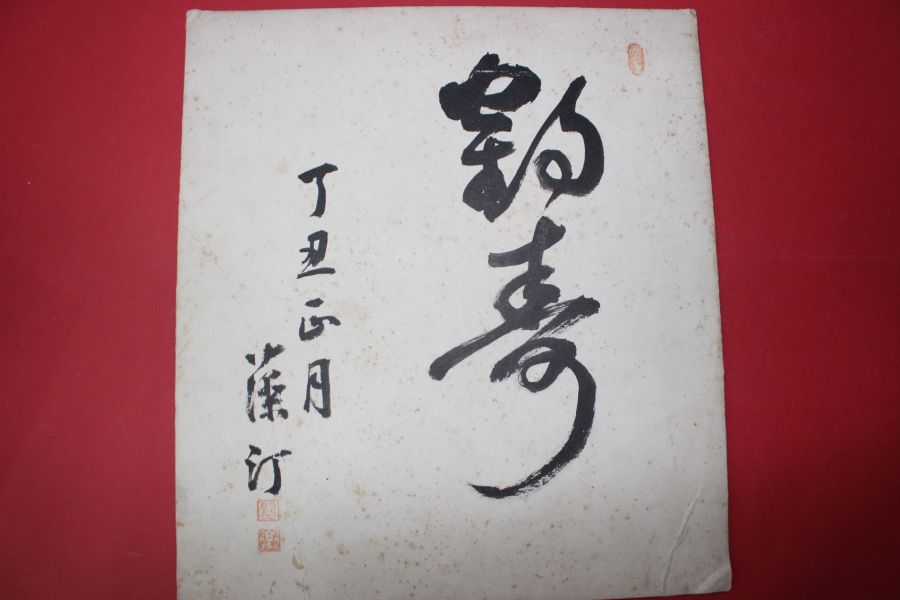 鶴寿
丁丑正月
蘓汀